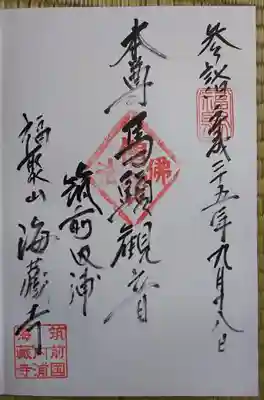 参詣 平成二十五年九月十八日
本尊 馬頭観音
筑前内浦
福聚山 海蔵寺
佛
筑前国
内浦
海蔵寺